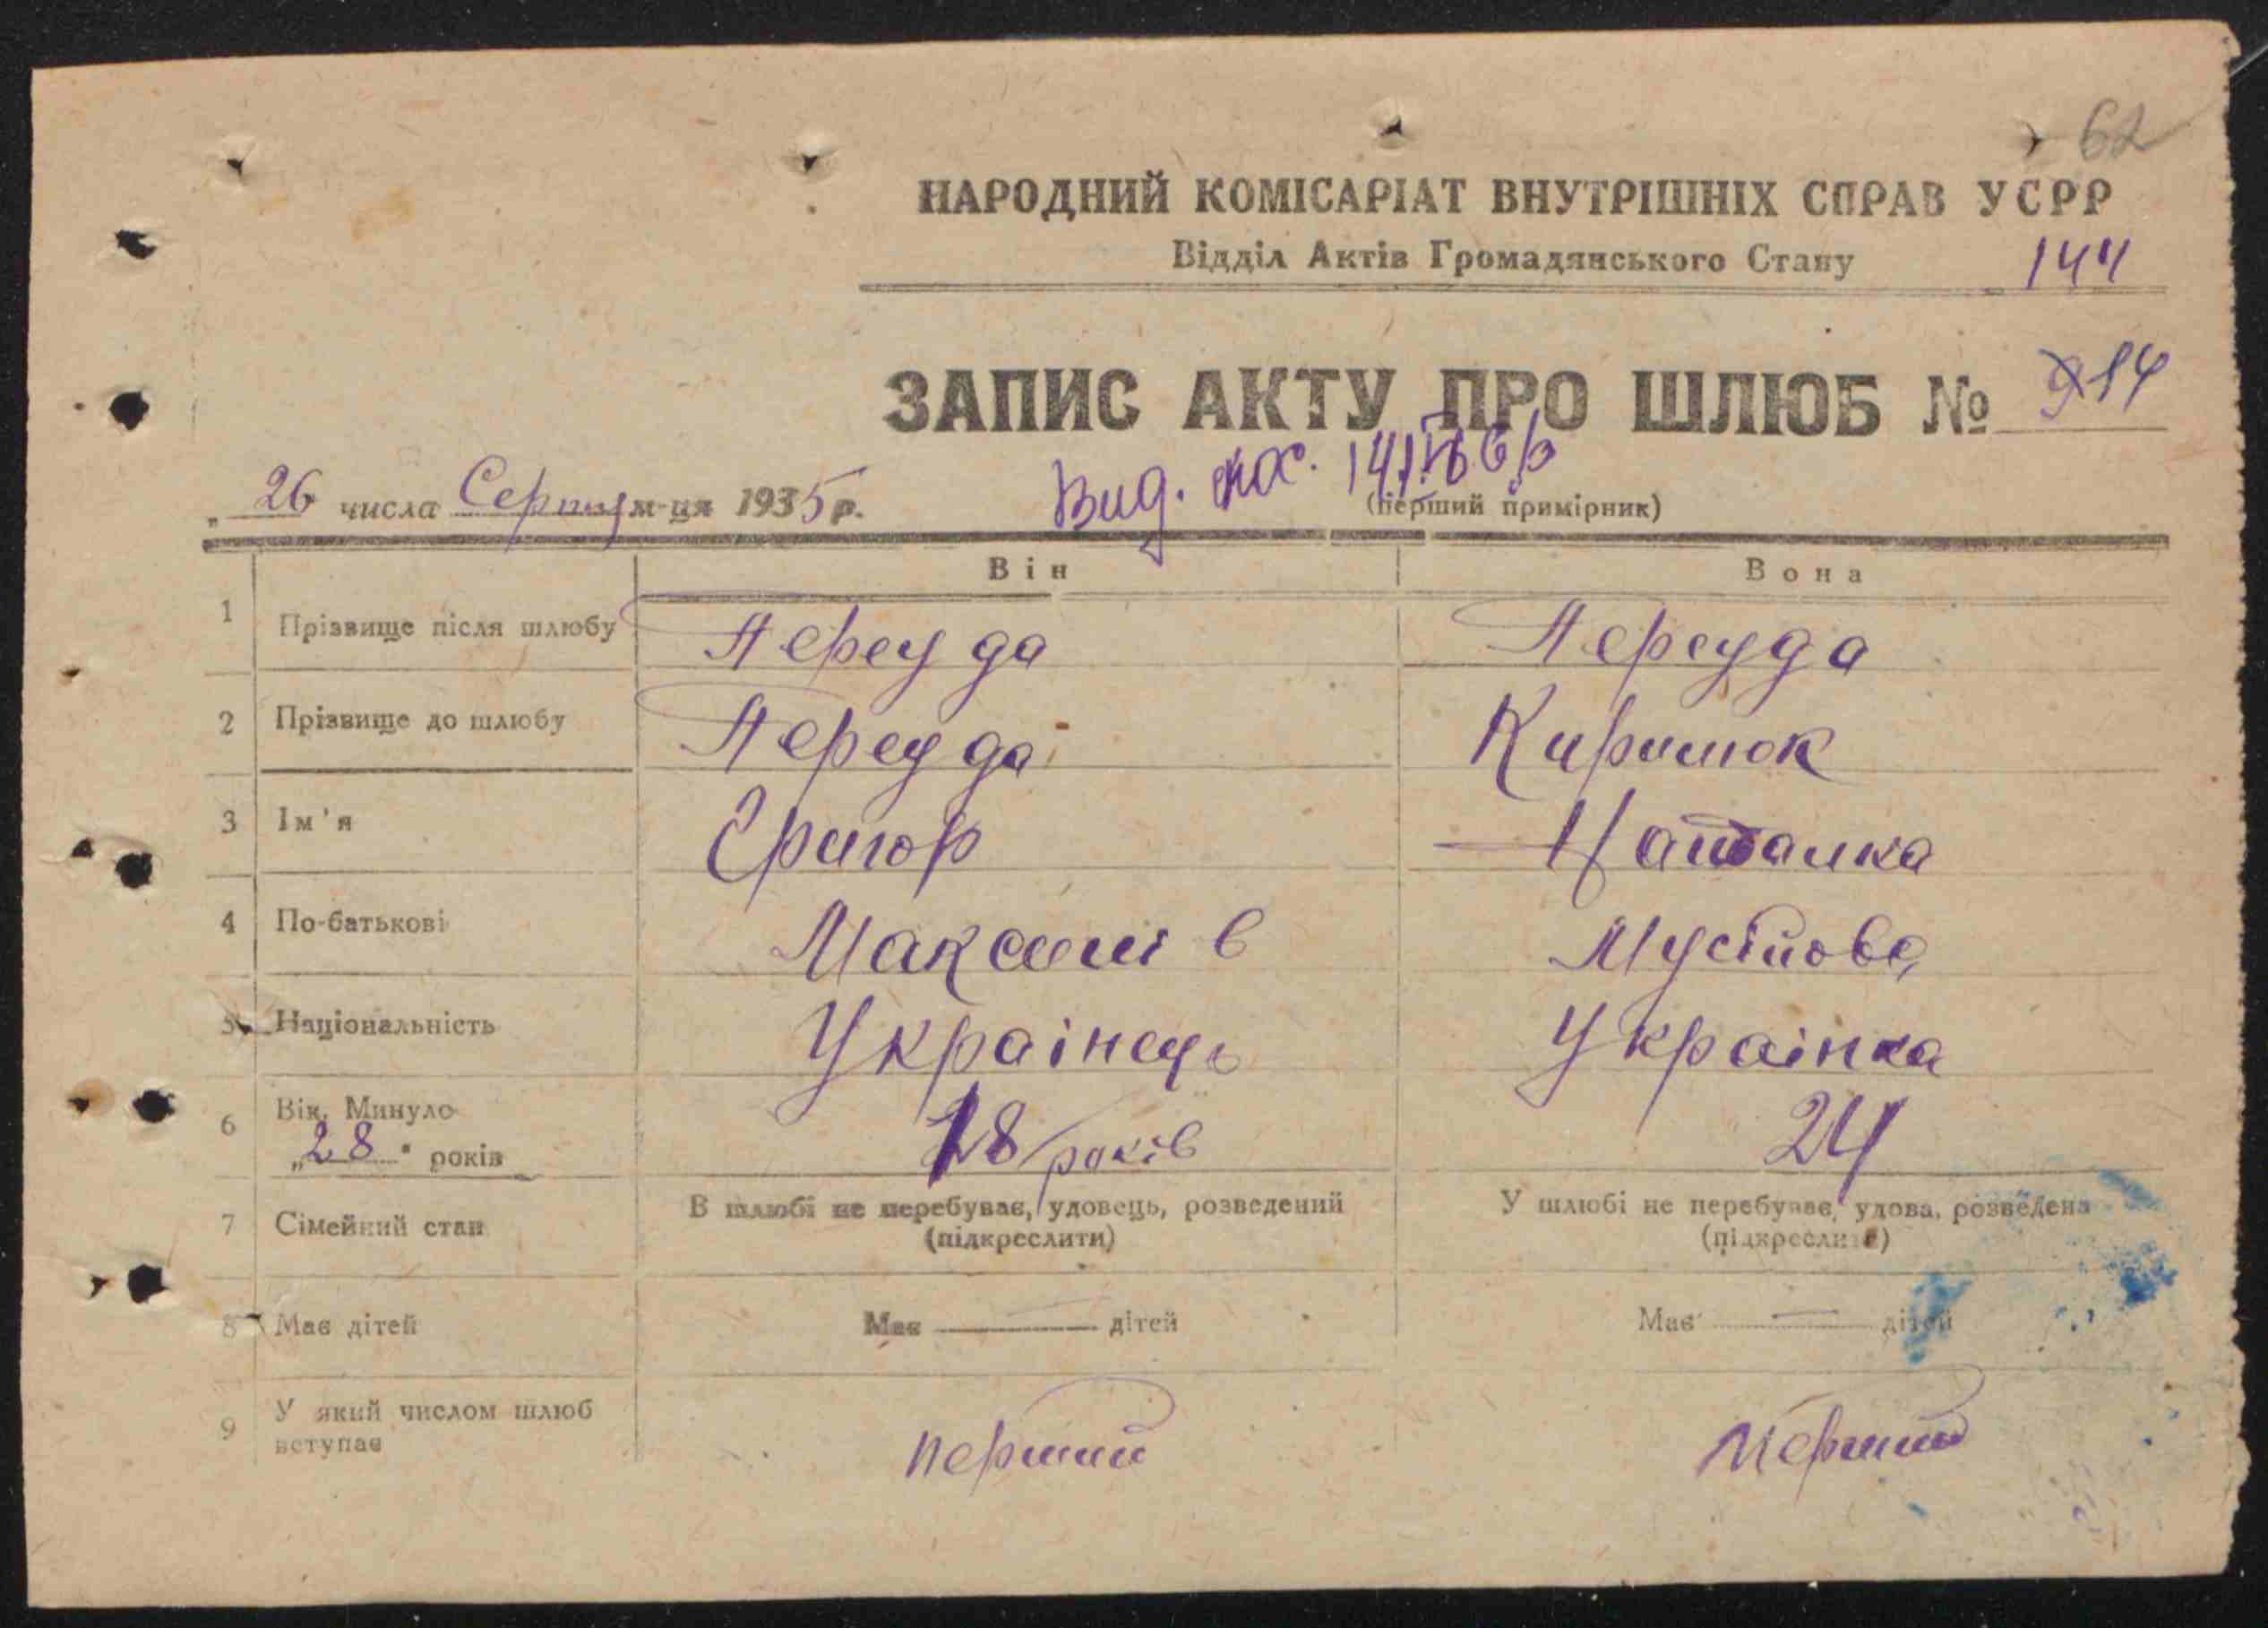 62
НАРОДНИЙ КОМІСАРІАТ ВНУТРІШНІХ СПРАВ УСРР
Відділ Актів Громадянського Стану 144
ЗАПИС АКТУ ПРО ШЛЮБ № 14
„ 26 числа Серпня м-ця 1935 р.
Вид. пас.
(перший примірник)
Він Вона
1 Прізвище після шлюбу Переуда Переуда
2 Прізвище до шлюбу Переуда
3 Ім'я Григор Наталка
4 По-батькові Максимів Мусійова
5 Національність Украінець Украінка
6 Вік. Минуло „28" років 28 років 24
7 Сімейний стан В шлюбі не перебуває, удовець, розведений (підкреслити) У шлюбі не перебуває, удова, розведена (підкреслити)
8 Має дітей Має — дітей Має — дітей
9 У який числом шлюб вступає перший перший